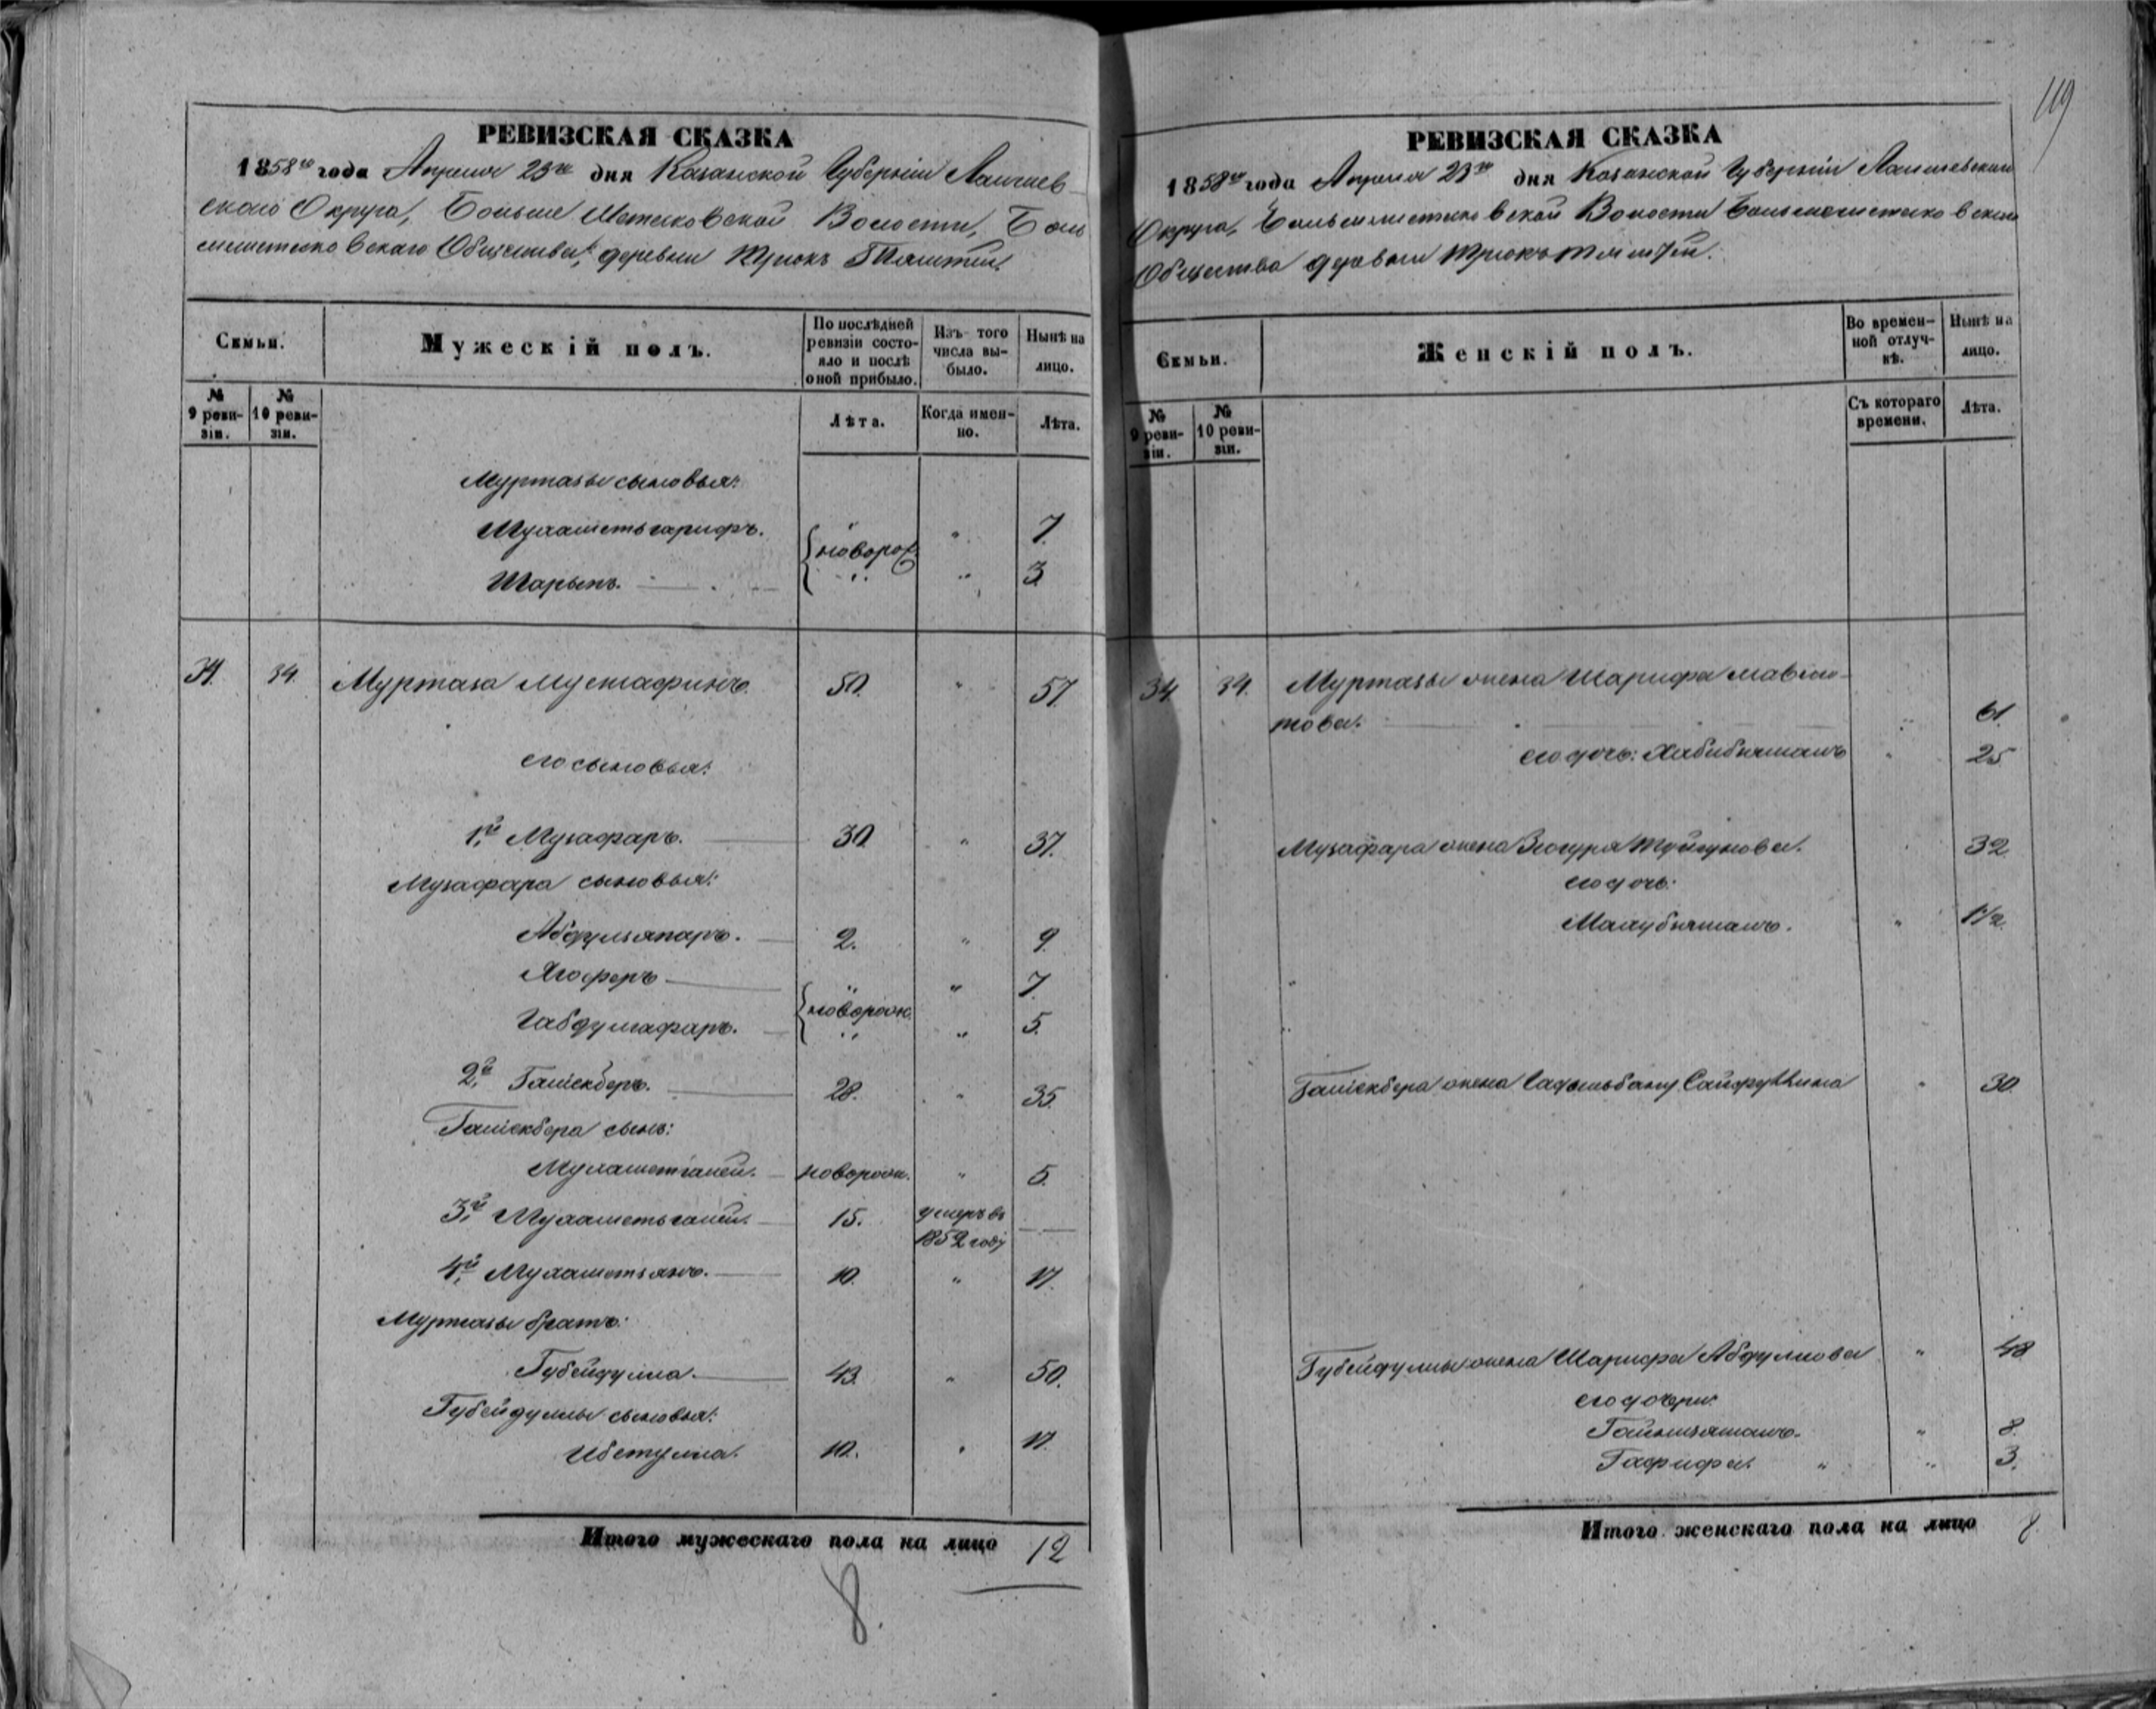 119
РЕВИЗСКАЯ СКАЗКА
1858го года Апреля 23го дня Казанской Губерніи Лаишев-
скаго Округа, Больше Метесковской Волости, Боль
шеметесковскаго Общества, деревни Трюкъ Тямти.
Семьи.
Мужескій полъ.
По послѣдней ревизіи состояло и послѣ оной прибыло.
Изъ того числа выбыло.
Нынѣ на лицо.
№ 9 ревизіи.
№ 10 ревизіи.
Лѣта.
Когда именно.
Лѣта.
Муртазы сыновья:
Мухаметьгарифъ. новорож. " 7.
Шарыпъ. " " 3
34. 34. Муртаза Мустафинъ 50. " 57.
его сыновья:
1й Музафаръ. 30 " 37.
Музафара сыновья:
Абдулзяпаръ. 2. " 9.
Ягоферъ новорож. " 7.
Габдулгафаръ. " " 5.
2й Галіекберъ. 28. " 35.
Галіекбера сынъ:
Мухаметгалей. новорож. " 5.
3й Мухаметьгалей. 15. умеръ въ 1852 году
4й Мухаметзянъ. 10. " 17.
Муртазы братъ:
Губейдулла. 43. " 50.
Губейдуллы сыновья:
Ибетулла. 10. " 17.
Итого мужескаго пола на лицо 12
8.
РЕВИЗСКАЯ СКАЗКА
1858го года Апреля 23го дня Казанской Губерніи Лаишевскаго
Округа, Большеметесковской Волости Большеметесковскаго
Общества деревни Трюкъ Тямти.
Семьи.
Женскій полъ.
Во временной отлучкѣ.
Нынѣ на лицо.
№ 9 ревизіи.
№ 10 ревизіи.
Съ котораго времени.
Лѣта.
34 34. Муртазы жена Шарифа Мавлю-
това. " 61.
его дочь: Хабибямалъ " 25
Музафара жена Зюгуря Туйгунова. 32
его дочь:
Магубямалъ. " 1 1/2
Галіекбера жена Садыльбану Сайфуллина " 30.
Губейдуллы жена Шарифа Абдулова " 48
его дочери:
Гайнизямалъ. " 8.
Гафифа. " " 3.
Итого женскаго пола на лицо 8.